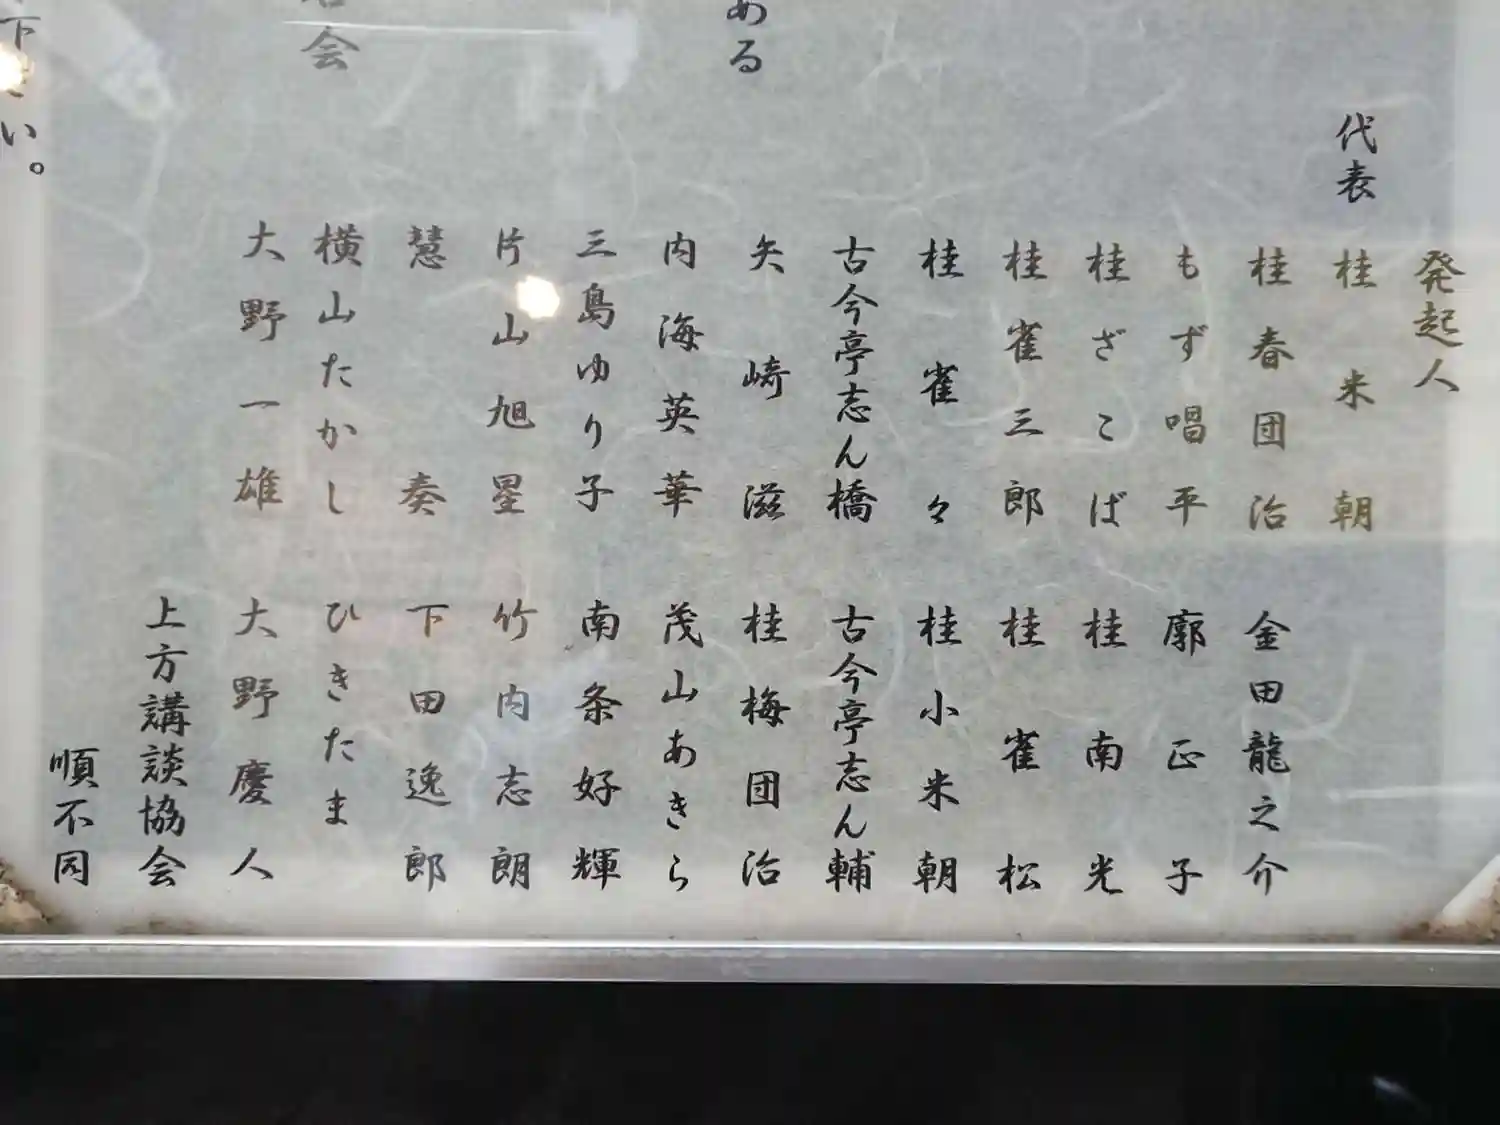 ある
会
下さい。
発起人
代表 桂米朝
桂春団治 金田龍之介
もず唱平 廓正子
桂ざこば 桂南光
桂雀三郎 桂雀松
桂雀々 桂小米朝
古今亭志ん橋 古今亭志ん輔
矢崎滋 桂梅団治
内海英華 茂山あきら
三島ゆり子 南条好輝
片山旭星 竹内志朗
慧奏 下田逸郎
横山たかし ひきたま
大野一雄 大野慶人
上方講談協会
順不同